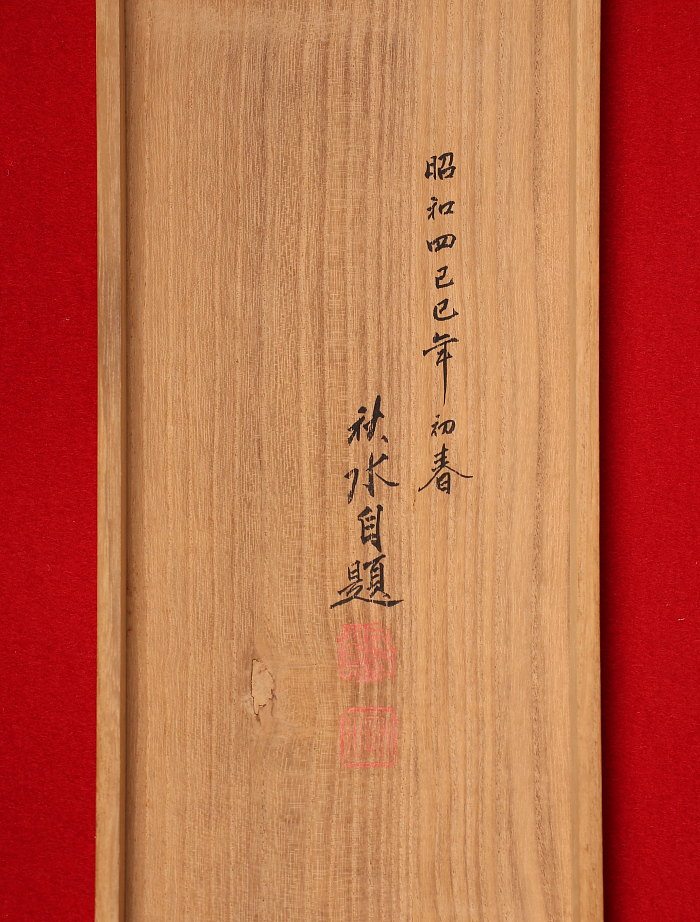 昭和四己巳年初春
秋水自題